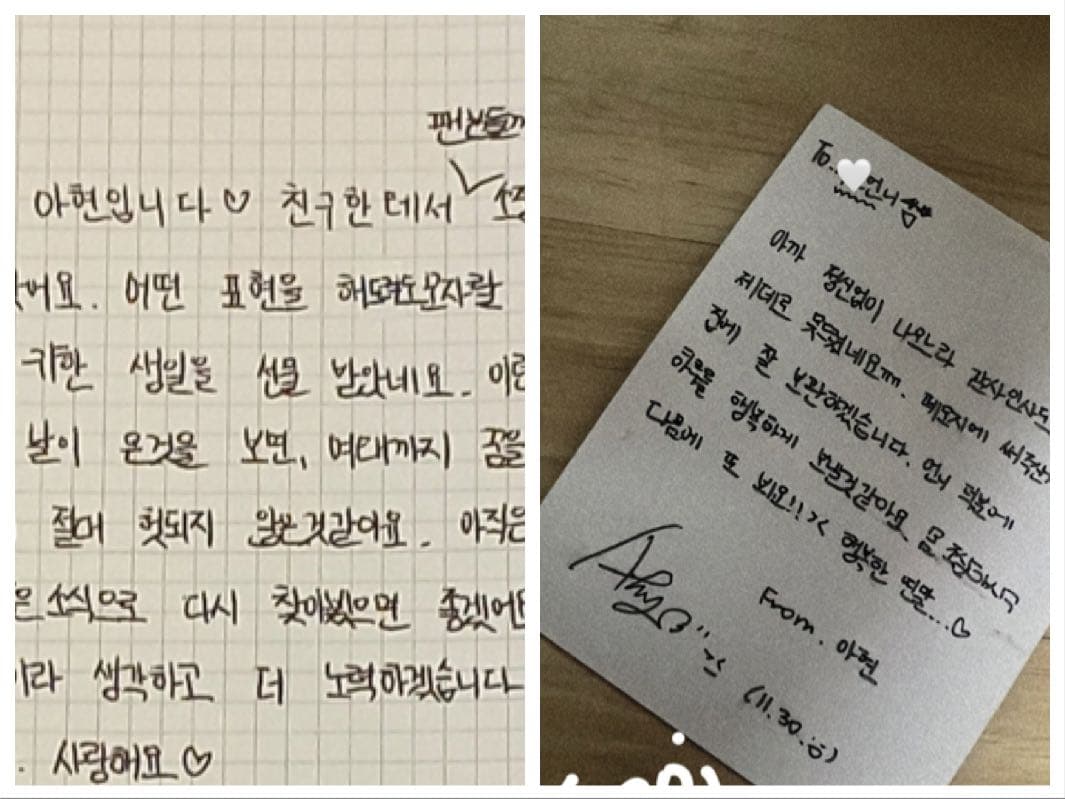 팬분들께
아현입니다♡ 친구한테서
어요. 어떤 표현을 해드려도 모자랄
귀한 생일을 선물 받았네요. 이런
날이 온것을 보면, 여태까지 꿈을
절대 헛되지 않은것같아요. 아직은
은 소식으로 다시 찾아뵀으면 좋겠어
이라 생각하고 더 노력하겠습니다
. 사랑해요♡
To. 언니
아까 정신없이 나오느라 감사인사도
제데로 못드렸네요ㅠㅠ. 메모지에 써주신
집에 잘 보관하겠습니다. 언니 덕분에
하루를 행복하게 보낼것같아요 몸 조심하시구
다음에 또 뵈요!! >< 행복한 연말...♡
From. 아현
(11.30. :))